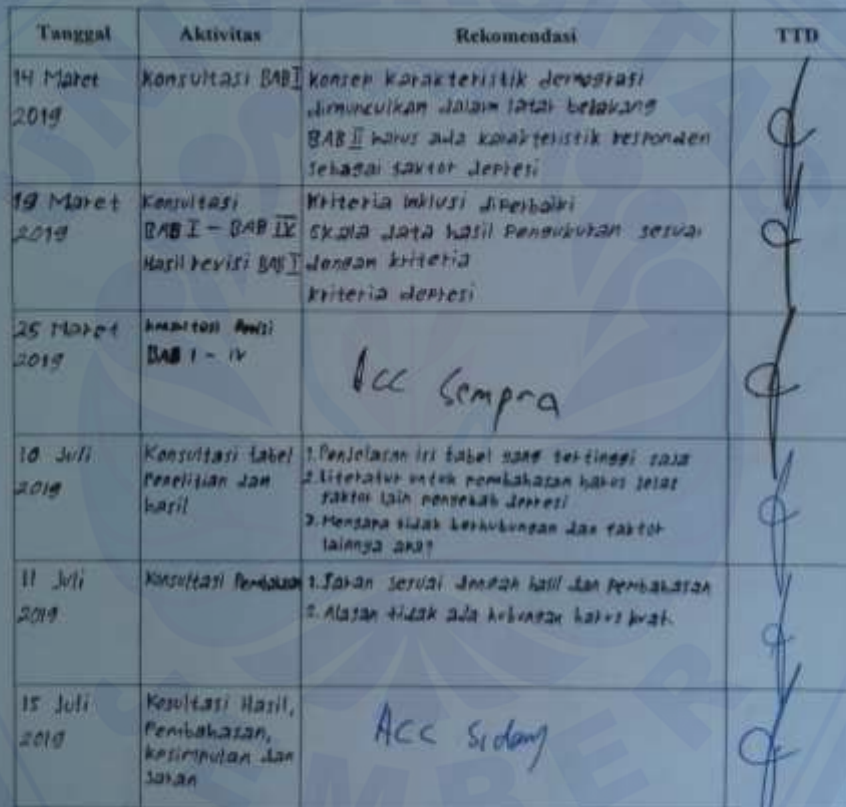 Tanggal Aktivitas Rekomendasi TTD
14 Maret
2019
Konsultasi BAB I
Konsep karakteristik demografi
dimunculkan dalam latar belakang
BAB II harus ada karakteristik responden
sebagai faktor depresi
19 Maret
2019
Konsultasi
BAB I - BAB IV
Hasil revisi BAB I
Kriteria inklusi diperbaiki
Skala data hasil pengukuran sesuai
dengan kriteria
kriteria depresi
25 Maret
2019
BAB I - IV
Acc Sempra
10 Juli
2019
Konsultasi tabel
Penelitian dan
hasil
1. Penjelasan isi tabel yang tertinggi saja
2. Literatur untuk pembahasan harus jelas
faktor lain penyebab depresi
3. Mengapa tidak berhubungan dan faktor
lainnya apa?
11 Juli
2019
Konsultasi Pembahasan
1. Saran sesuai dengan hasil dan pembahasan
2. Alasan tidak ada hubungan harus kuat.
15 Juli
2019
Kosultasi Hasil,
Pembahasan,
kesimpulan dan
saran
ACC Sidang
UNIVERSITAS
JEMBER